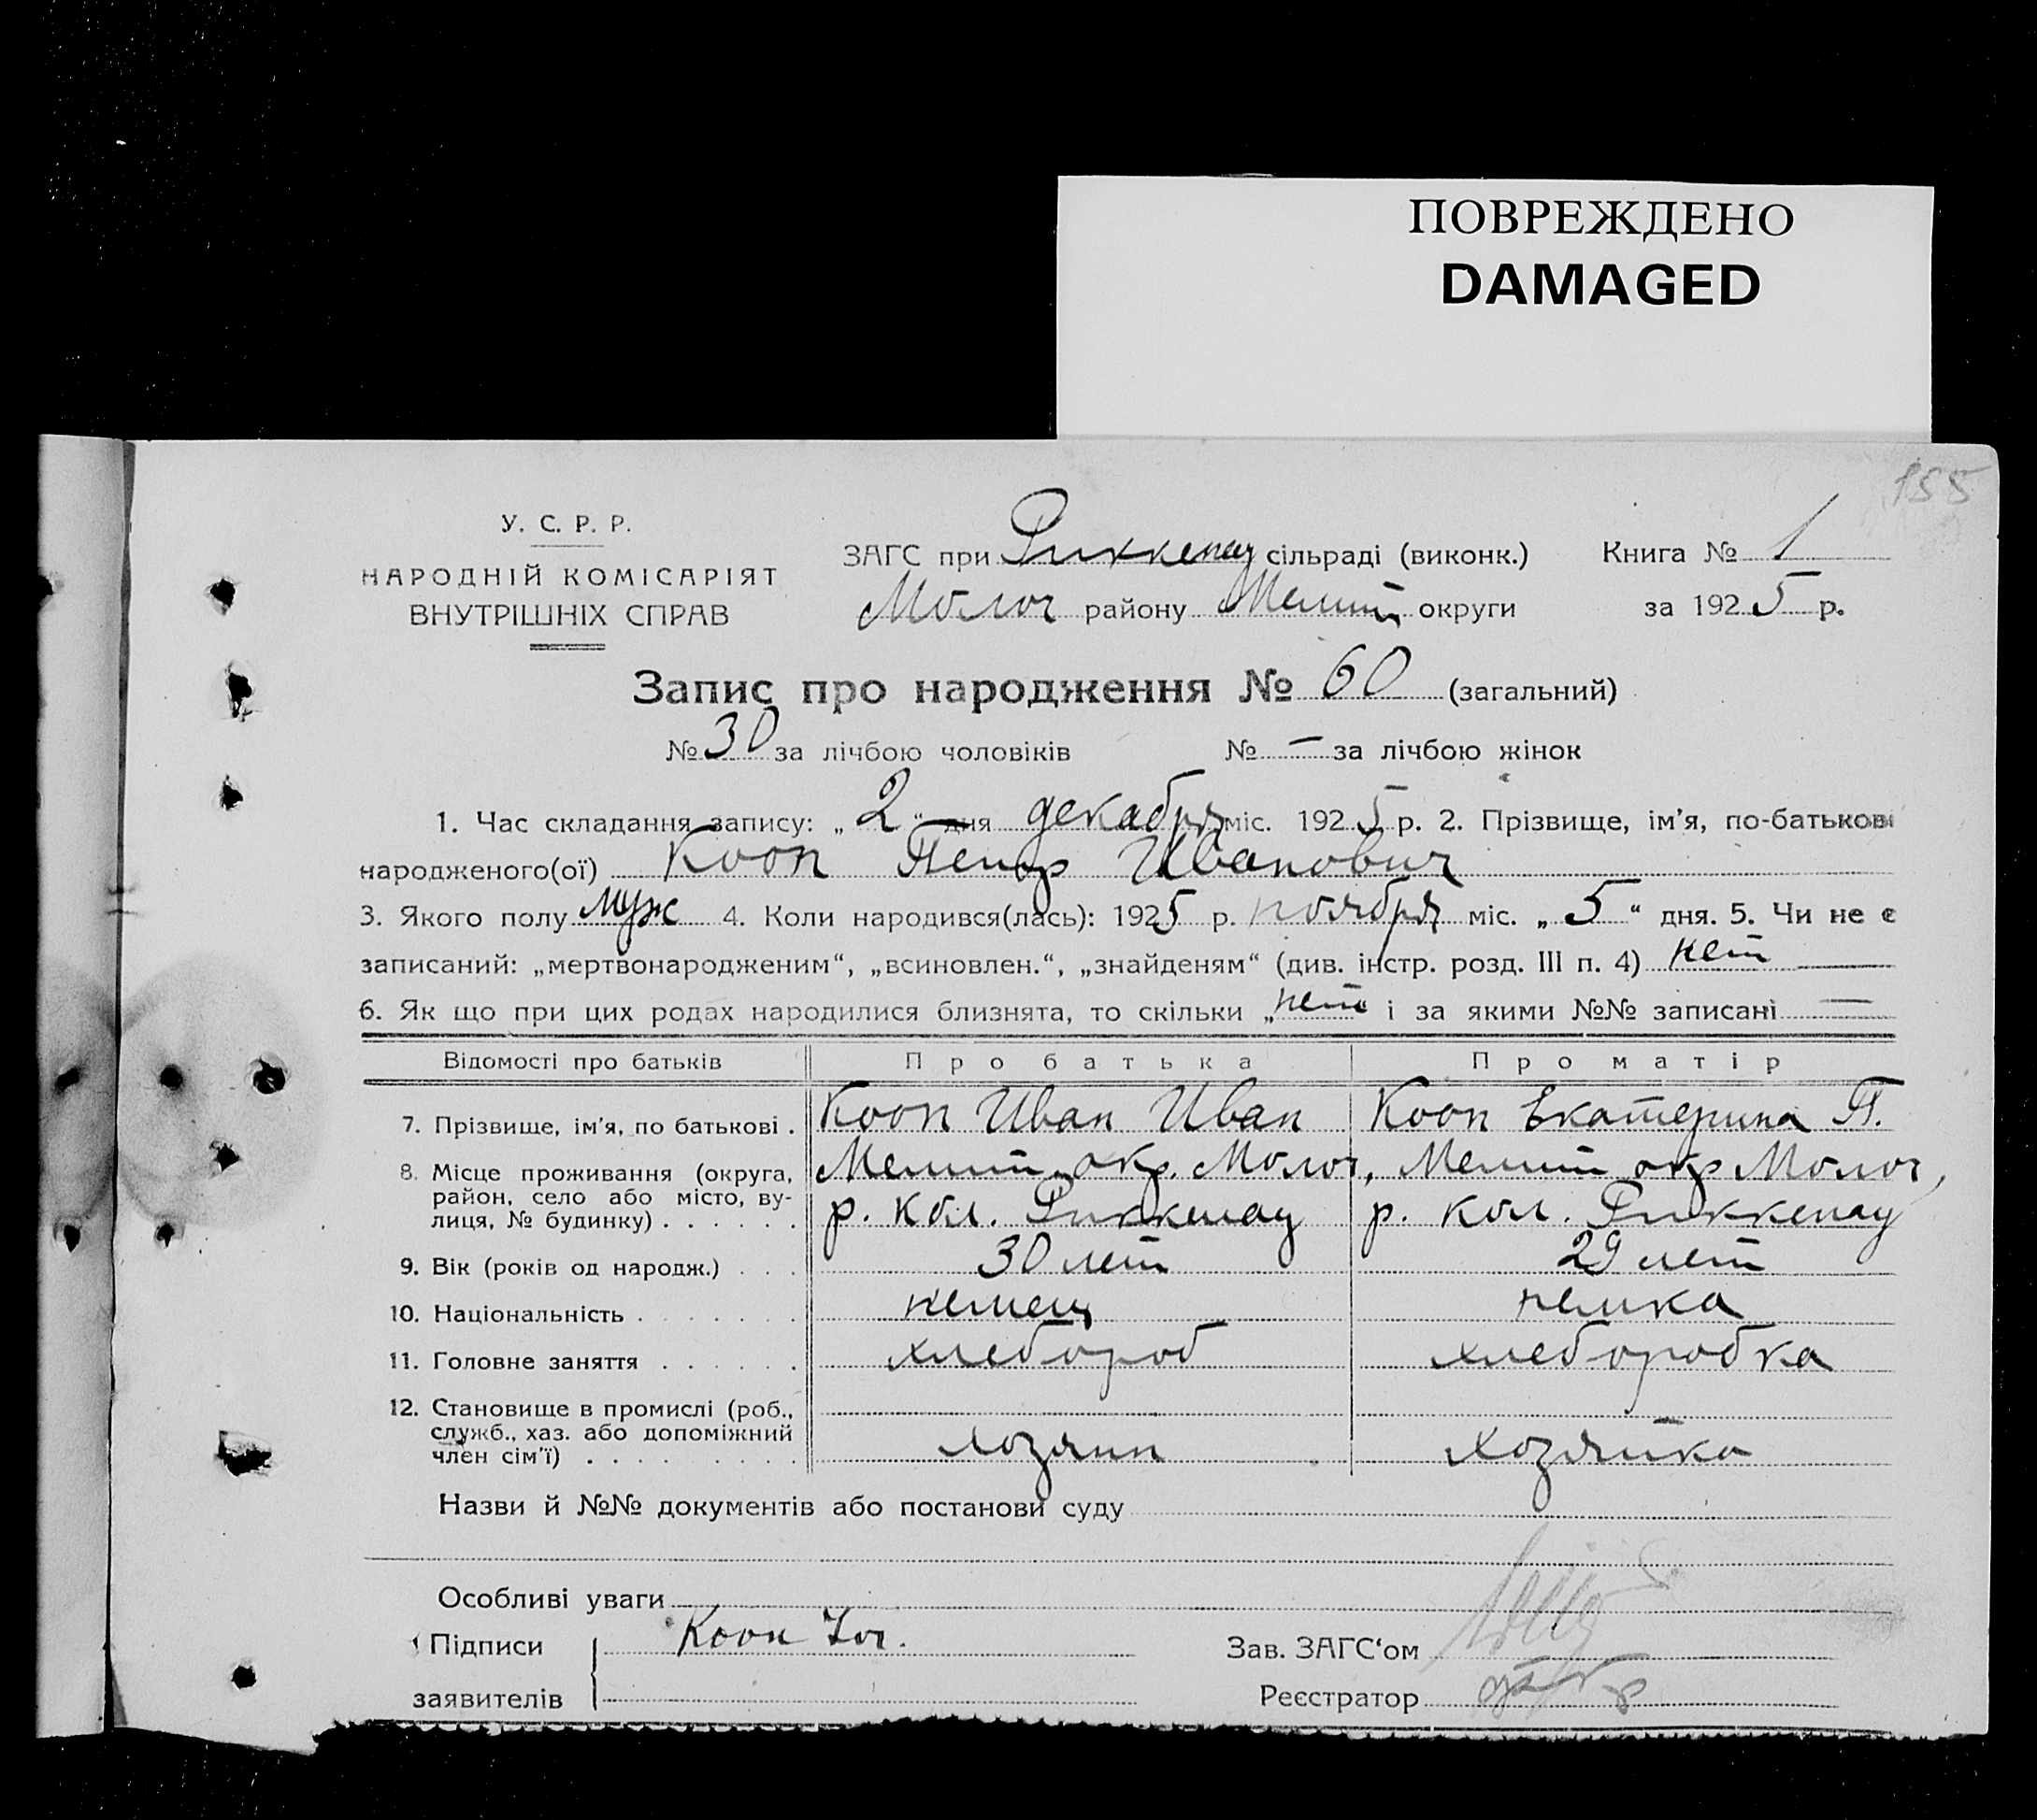 ПОВРЕЖДЕНО
DAMAGED
155
У. С. Р. Р.
НАРОДНІЙ КОМІСАРІЯТ
ВНУТРІШНІХ СПРАВ
ЗАГС при Риккенау сільраді (виконк.) Книга № 1
Молоч району Мелит округи за 1925 р.
Запис про народження № 60 (загальний)
№ 30 за лічбою чоловіків № — за лічбою жінок
1. Час складання запису: „2“ дня декабря міс. 1925 р. 2. Прізвище, ім’я, по-батькові
народженого(ої) Кооп Петр Иванович
3. Якого полу муж 4. Коли народився(лась): 1925 р. ноября міс. „5“ дня. 5. Чи не є
записаний: „мертвонародженим“, „всиновлен.“, „знайденям“ (див. інстр. розд. III п. 4) нет —
6. Як що при цих родах народилися близнята, то скільки „нет і за якими №№ записані —
Відомості про батьків Про батька Про матір
7. Прізвище, ім’я, по батькові . Кооп Иван Иван Кооп Екатерина П.
8. Місце проживання (округа, район, село або місто, ву-лиця, № будинку) . . . . . . Мелит. окр. Молоч, р. кол. Риккенау Мелит окр Молоч, р. кол. Риккенау
9. Вік (років од народж.) . . . 30 лет 29 лет
10. Національність . . . . . . . немец немка
11. Головне заняття . . . . . . хлебороб хлеборобка
12. Становище в промислі (роб., служб., хаз. або допоміжний член сім’ї) . . . . . . . . . хозяин хозяйка
Назви й №№ документів або постанови суду
Особливі уваги
Підписи Кооп Зав. ЗАГС‘ом
заявителів Реєстратор